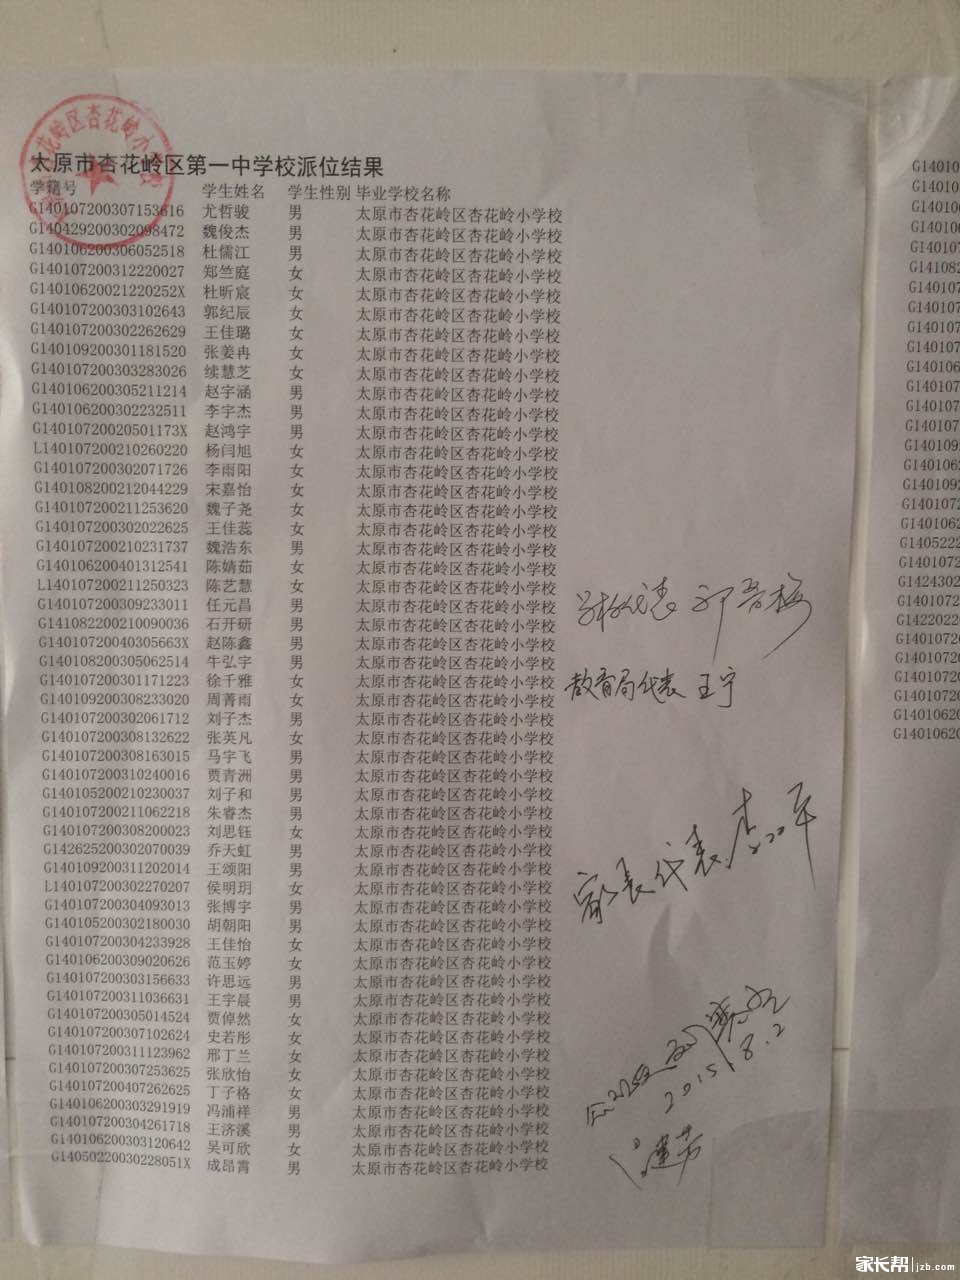 太原市杏花岭区第一中学校派位结果
学籍号 学生姓名 学生性别 毕业学校名称
G140107200307153616 尤哲骏 男 太原市杏花岭区杏花岭小学校
G140429200302098472 魏俊杰 男 太原市杏花岭区杏花岭小学校
G140106200306052518 杜儒江 男 太原市杏花岭区杏花岭小学校
G140107200312220027 郑竺庭 女 太原市杏花岭区杏花岭小学校
G14010620021220252X 杜昕宸 女 太原市杏花岭区杏花岭小学校
G140107200303102643 郭纪辰 女 太原市杏花岭区杏花岭小学校
G140107200302262629 王佳璐 女 太原市杏花岭区杏花岭小学校
G140109200301181520 张姜冉 女 太原市杏花岭区杏花岭小学校
G140107200303283026 续慧芝 女 太原市杏花岭区杏花岭小学校
G140106200305211214 赵宇涵 男 太原市杏花岭区杏花岭小学校
G140106200302232511 李宇杰 男 太原市杏花岭区杏花岭小学校
G14010720020501173X 赵鸿宇 男 太原市杏花岭区杏花岭小学校
L140107200210260220 杨闫旭 女 太原市杏花岭区杏花岭小学校
G140107200302071726 李雨阳 女 太原市杏花岭区杏花岭小学校
G140108200212044229 宋嘉怡 女 太原市杏花岭区杏花岭小学校
G140107200211253620 魏子尧 女 太原市杏花岭区杏花岭小学校
G140107200302022625 王佳蕊 女 太原市杏花岭区杏花岭小学校
G140107200210231737 魏浩东 男 太原市杏花岭区杏花岭小学校
G140106200401312541 陈婧茹 女 太原市杏花岭区杏花岭小学校
L140107200211250323 陈艺慧 女 太原市杏花岭区杏花岭小学校
G140107200309233011 任元昌 男 太原市杏花岭区杏花岭小学校
G141082200210090036 石开研 男 太原市杏花岭区杏花岭小学校
G14010720040305663X 赵陈鑫 男 太原市杏花岭区杏花岭小学校
G140108200305062514 牛弘宇 男 太原市杏花岭区杏花岭小学校
G140107200301171223 徐千雅 女 太原市杏花岭区杏花岭小学校
G140109200308233020 周菁雨 女 太原市杏花岭区杏花岭小学校
G140107200302061712 刘子杰 男 太原市杏花岭区杏花岭小学校
G140107200308132622 张英凡 女 太原市杏花岭区杏花岭小学校
G140107200308163015 马宇飞 男 太原市杏花岭区杏花岭小学校
G140107200310240016 贾青洲 男 太原市杏花岭区杏花岭小学校
G140105200210230037 刘子和 男 太原市杏花岭区杏花岭小学校
G140107200211062218 朱睿杰 男 太原市杏花岭区杏花岭小学校
G140107200308200023 刘思钰 女 太原市杏花岭区杏花岭小学校
G142625200302070039 乔天虹 男 太原市杏花岭区杏花岭小学校
G140109200311202014 王颂阳 男 太原市杏花岭区杏花岭小学校
L140107200302270207 侯明玥 女 太原市杏花岭区杏花岭小学校
G140107200304093013 张博宇 男 太原市杏花岭区杏花岭小学校
G140105200302180030 胡朝阳 男 太原市杏花岭区杏花岭小学校
G140107200304233928 王佳怡 女 太原市杏花岭区杏花岭小学校
G140106200309020626 范玉婷 女 太原市杏花岭区杏花岭小学校
G140107200303156633 许思远 男 太原市杏花岭区杏花岭小学校
G140107200311036631 王宇晨 男 太原市杏花岭区杏花岭小学校
G140107200305014524 贾倬然 女 太原市杏花岭区杏花岭小学校
G140107200307102624 史若彤 女 太原市杏花岭区杏花岭小学校
G140107200311123962 邢丁兰 女 太原市杏花岭区杏花岭小学校
G140107200307253625 张欣怡 女 太原市杏花岭区杏花岭小学校
G140107200407262625 丁子格 女 太原市杏花岭区杏花岭小学校
G140106200303291919 冯浦祥 男 太原市杏花岭区杏花岭小学校
G140107200304261718 王济溪 男 太原市杏花岭区杏花岭小学校
G140106200303120642 吴可欣 女 太原市杏花岭区杏花岭小学校
G14050220030228051X 成昂霄 男 太原市杏花岭区杏花岭小学校
学校代表
教育局代表 王宁
家长代表
2015.8.2
家长帮 jzb.com